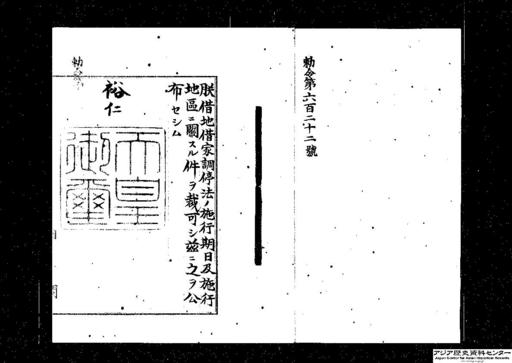 勅令第六百二十二號
朕借地借家調停法ノ施行期日及施行
地區ニ關スル件ヲ裁可シ茲ニ之ヲ公
布セシム
裕仁
天皇
御璽
勅令
アジア歴史資料センター
Japan Center for Asian Historical Records